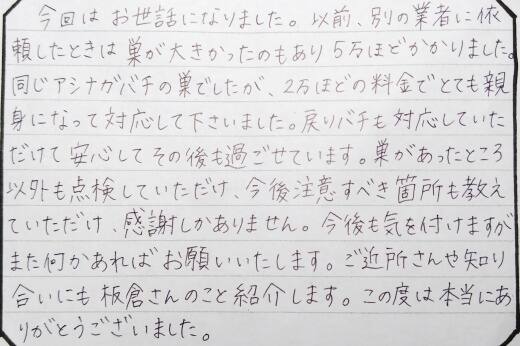 今回はお世話になりました。以前、別の業者に依
頼したときは巣が大きかったのもあり5万ほどかかりました。
同じアシナガバチの巣でしたが、2万ほどの料金でとても親
身になって対応して下さいました。戻りバチも対応していた
だけて安心してその後も過ごせています。巣があったところ
以外も点検していただけ、今後注意すべき箇所も教え
ていただけ、感謝しかありません。今後も気を付けますが
また何かあればお願いいたします。ご近所さんや知り
合いにも板倉さんのこと紹介します。この度は本当にあ
りがとうございました。